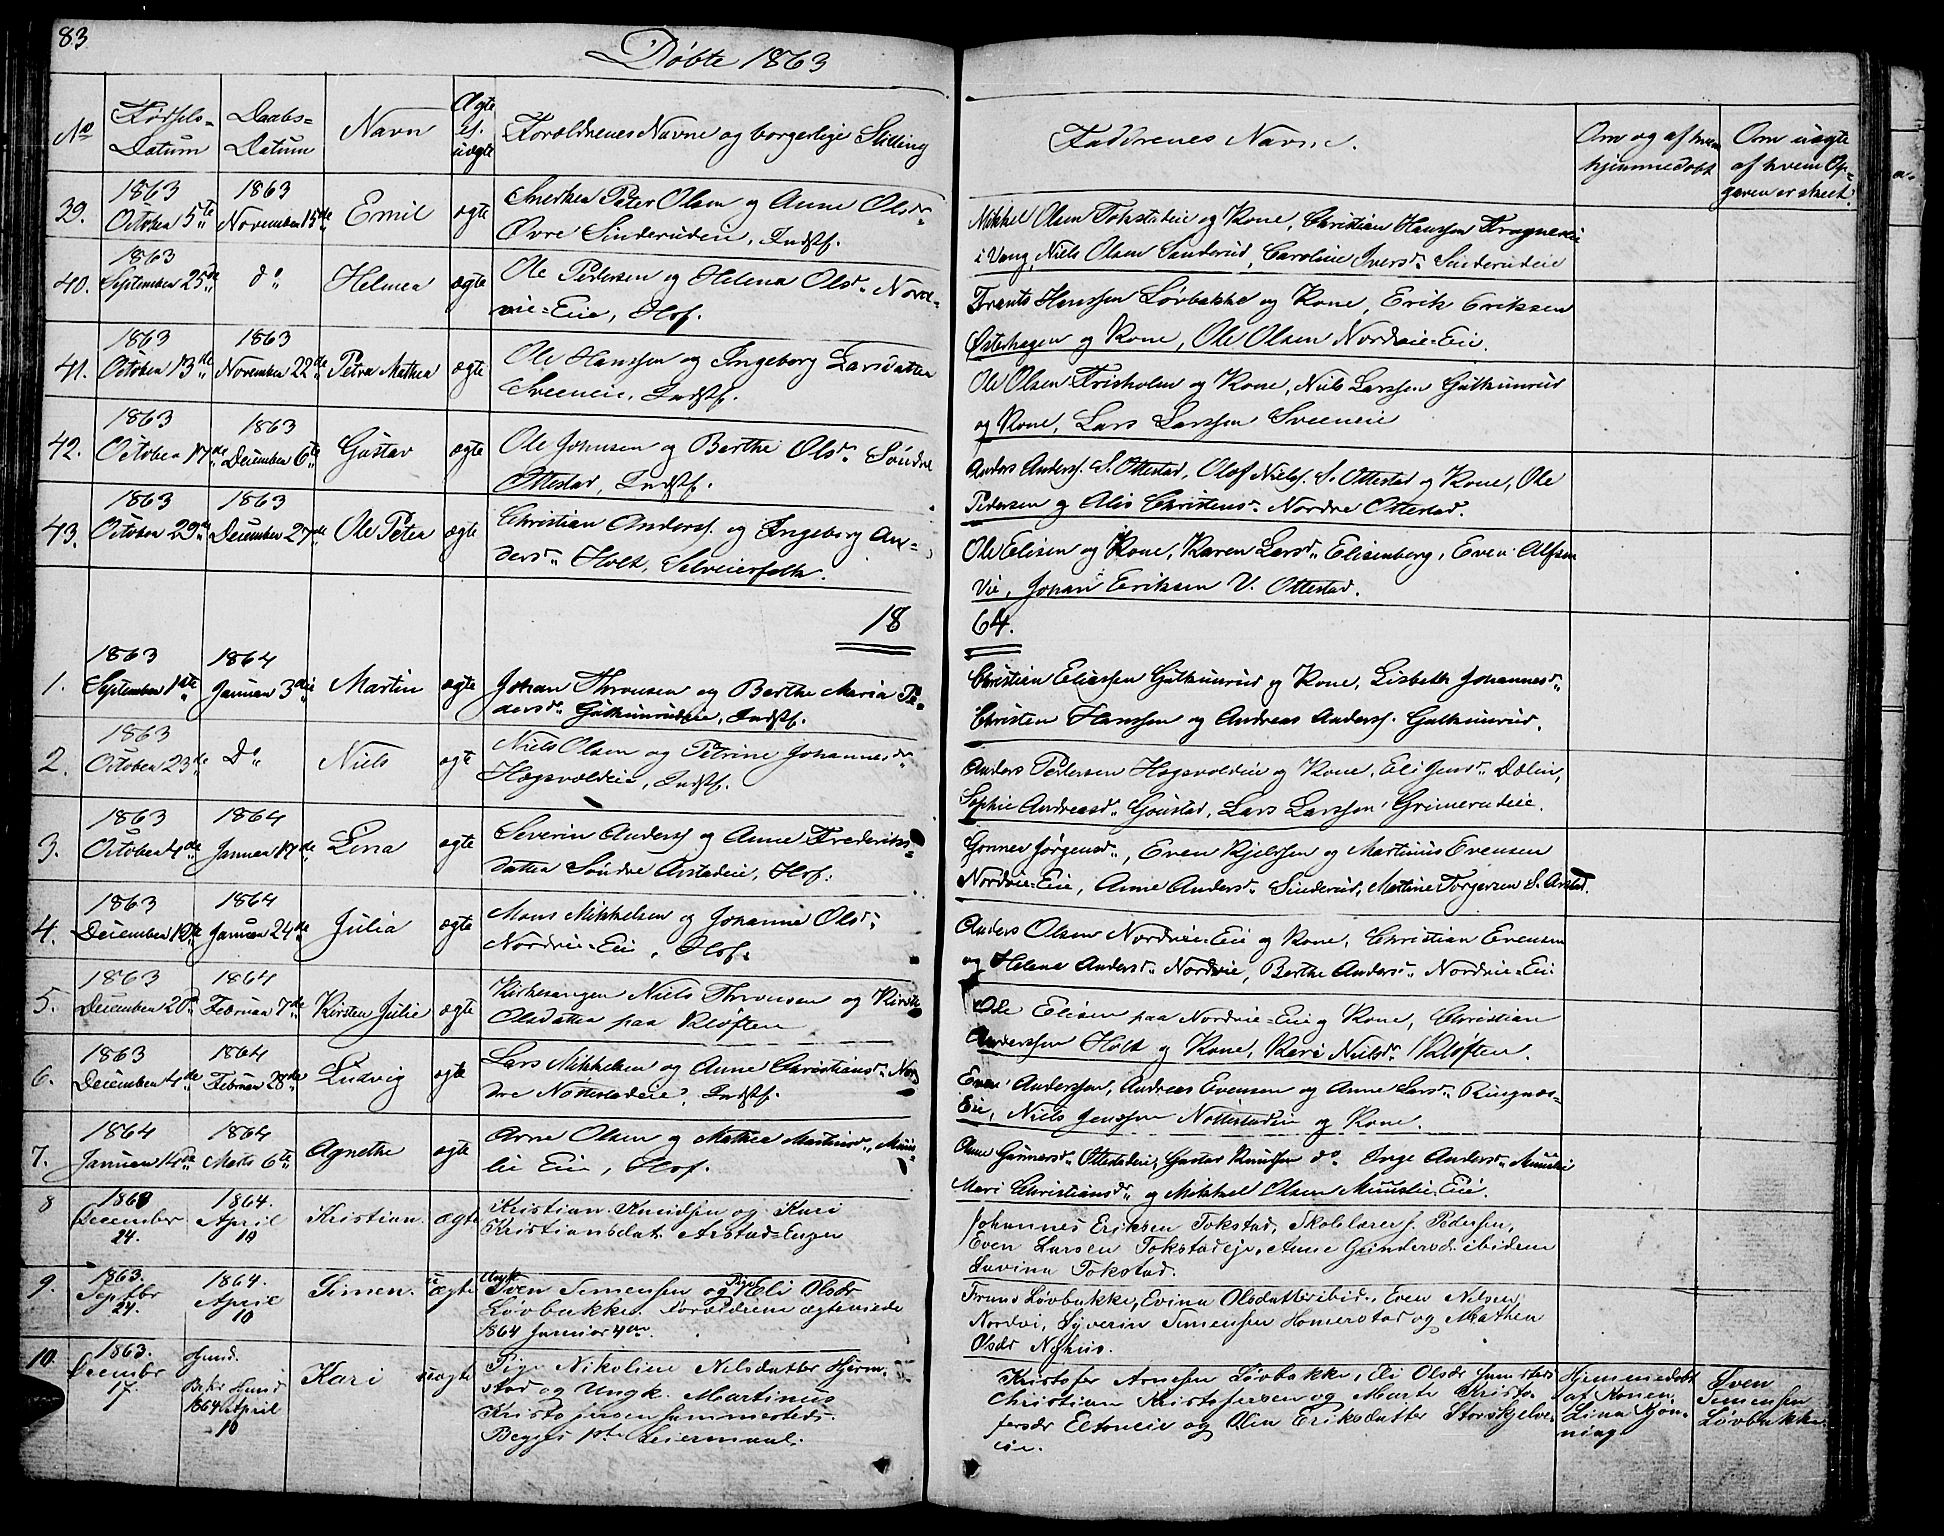 83
Døbte 1863
No
Fødsels-
Datum
Daabs-
Datum
Navn
Ægte
el.
uægte
Forældrenes Navne og borgerlige Stilling
Faddrenes Navne.
Om og af hvem
hjemmedøbt
Om uægte
af hvem Op-
gaven er skeet.
39.
1863
October 5te
1863
November 15de
Emil
ægte
Peter Olsen og Anne Olsdr.
Øvre Sinderudeie, Indstf.
Mikkel Olsen Tokstadeie og Kone, Christian Hanssen Frognereie
i Vang, Niels Olsen Sinderud, Caroline Iversdr. Sinderudeie
40.
1863
September 25de
do
Helmer
ægte
Ole Pedersen og Helena Olsdr. Nord-
vie-Eie, Hof.
Frants Hanssen Løvbakke og Kone, Erik Eriksen
Østerhagen og Kone, Ole Olsen Nordvie-Eie.
41.
1863
October 13de
1863
November 22de
Petra Mathea
ægte
Ole Hanssen og Ingeborg Larsdatter
Sveeneie, Indstf.
Ole Olsen Frisholm og Kone, Niels Larssen Guthunrud
og Kone, Lars Larssen Sveeneie
42.
1863
October 17de
1863
December 6te
Gustav
ægte
Ole Johnsen og Berthe Olsdr. Søndre
Ottestad, Indstf.
Anders Anderss. S. Ottestad, Olof Nielss. S. Ottestad og Kone, Ole
Pedersen og Alis Christensdr. Nordre Ottestad.
43.
1863
October 29de
1863
December 27de
Ole Peter
ægte
Christian Anderss. og Ingeborg An-
dersdr. Holt, Selveierfolk.
Ole Elisen og Kone, Karen Larsdr. Elisenberg, Even Alfsen
Vie, Johan Eriksen V. Ottestad.
18
64.
1.
1863
September 1ste
1864
Januar 3die
Martin
ægte
Johan Thronsen og Berthe Maria Pe-
dersdr. Guthunrudeie, Indstf.
Christian Eliassen Guthunrud og Kone, Lisbeth Johannesdr.
Christen Hanssen og Andreas Anderss. Guthunrud.
2.
1863
October 23de
Do
Niels
ægte
Niels Olsen og Petrine Johannesdr.
Hogsvoldeie, Indstf.
Anders Pedersen Hogsvoldeie og Kone, Eli Jensdr. Dælin,
Sophie Andreasdr. Goustad, Lars Larssen Grimerudeie.
3.
1863
October 4de
1864
Januar 17de
Lina
ægte
Severin Anderss. og Anne Frederiks-
datter Søndre Arstadeie, Hof.
Gonner Jørgensdr., Even Kjelssen og Martinus Evensen
Nordvie-Eie, Anne Andersdr. Sinderud, Martine Torgersen S. Arstad.
4.
1863
December 12te
1864
Januar 24de
Julia
ægte
Mons Mikkelsen og Johanne Olsdr.
Nordvie-Eie, Hof.
Anders Olsen Nordvie-Eie og Kone, Christian Evensen
og Helene Andersdr. Nordvie, Berthe Andersdr. Nordvie-Eie
5.
1863
December 20de
1864
Februar 7de
Kirsten Julie
ægte
Kirkesanger Niels Thronsen og Kirsti
Olsdatter paa Kløften
Ole Elisen paa Nordvie-Eie og Kone, Christian
Anderssen Holt og Kone, Kari Nielsdr. Kløften.
6.
1863
December 4de
1864
Februar 28de
Ludvig
ægte
Lars Mikkelsen og Anne Christiansdr. Nor-
dre Nottestadeie, Indstf.
Even Anderssen, Andreas Evensen og Anne Larsdr. Ringnæs-
Eie, Niels Jenssen Nottestadeie og Kone.
7.
1864
Januar 14de
1864
Marts 6te
Agnethe
ægte
Arne Olsen og Mathea Martinusdr. Muus-
lie Eie, Hof.
Anne Gunnersdr. Ottestadeie, Gustav Knutssen do. Inge Andersdr. Muuslie
Mari Christiansdr. og Mikkel Olsen Muuslie-Eie.
8
1863
December
24.
1864.
April
10
Kristian.
ægte
Kristian Knudsen og Kari
Kristiansdat. Arstad-Engen
Johannes Eriksen Tokstad, Skolelærer J. Pedersen,
Even Larsen Tokstadeje, Anne Gundersd. ibidem
Lavina Tokstad.
9.
1863.
Septbr
24.
1864.
April
10
Simen.
uægte
Ungk
Sven Simensen og Pige Eli Olsdr
Løvbakke. Forældrene ægteviede
1864 Januar 4de.
Frans Løvbakke, Evina Olsdatter ibid., Even Nilsen
Nordvi, Syverin Simensen Homerstad og Mathea
Olsdr Nyhus.
10.
1863.
December
17.
Hjemd.
Bekr Hjemd
1864 April
10
Kari
uægte
Pige Nikoline Nilsdatter Hjerm-
stad og Ungk. Martinus
Kristofersen Hammerstad.
Begges 1ste Leiermaal.
Kristofer Arnesen Løvbakke, Eli Olsdr Hamersted
Christian Kristofersen og Marte Kristo-
fersdr Eltoneie og Alia Eriksdatter Storskjelve-
eie.
Hjemmedøbt
af Konen
Lina Kjøn-
ning
Sven
Simensen
Løvbakke